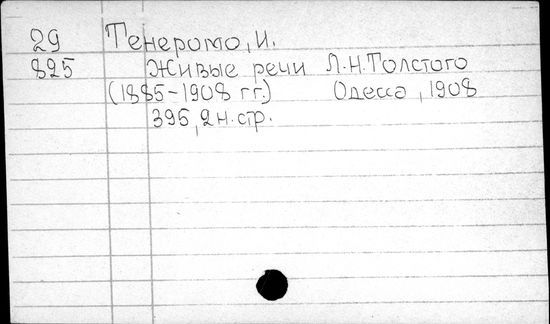 29 Тенеромо, И.
825 Живые речи Л.Н.Толстого
(1885-1908 гг.) Одесса, 1908
395, 2 н. стр.